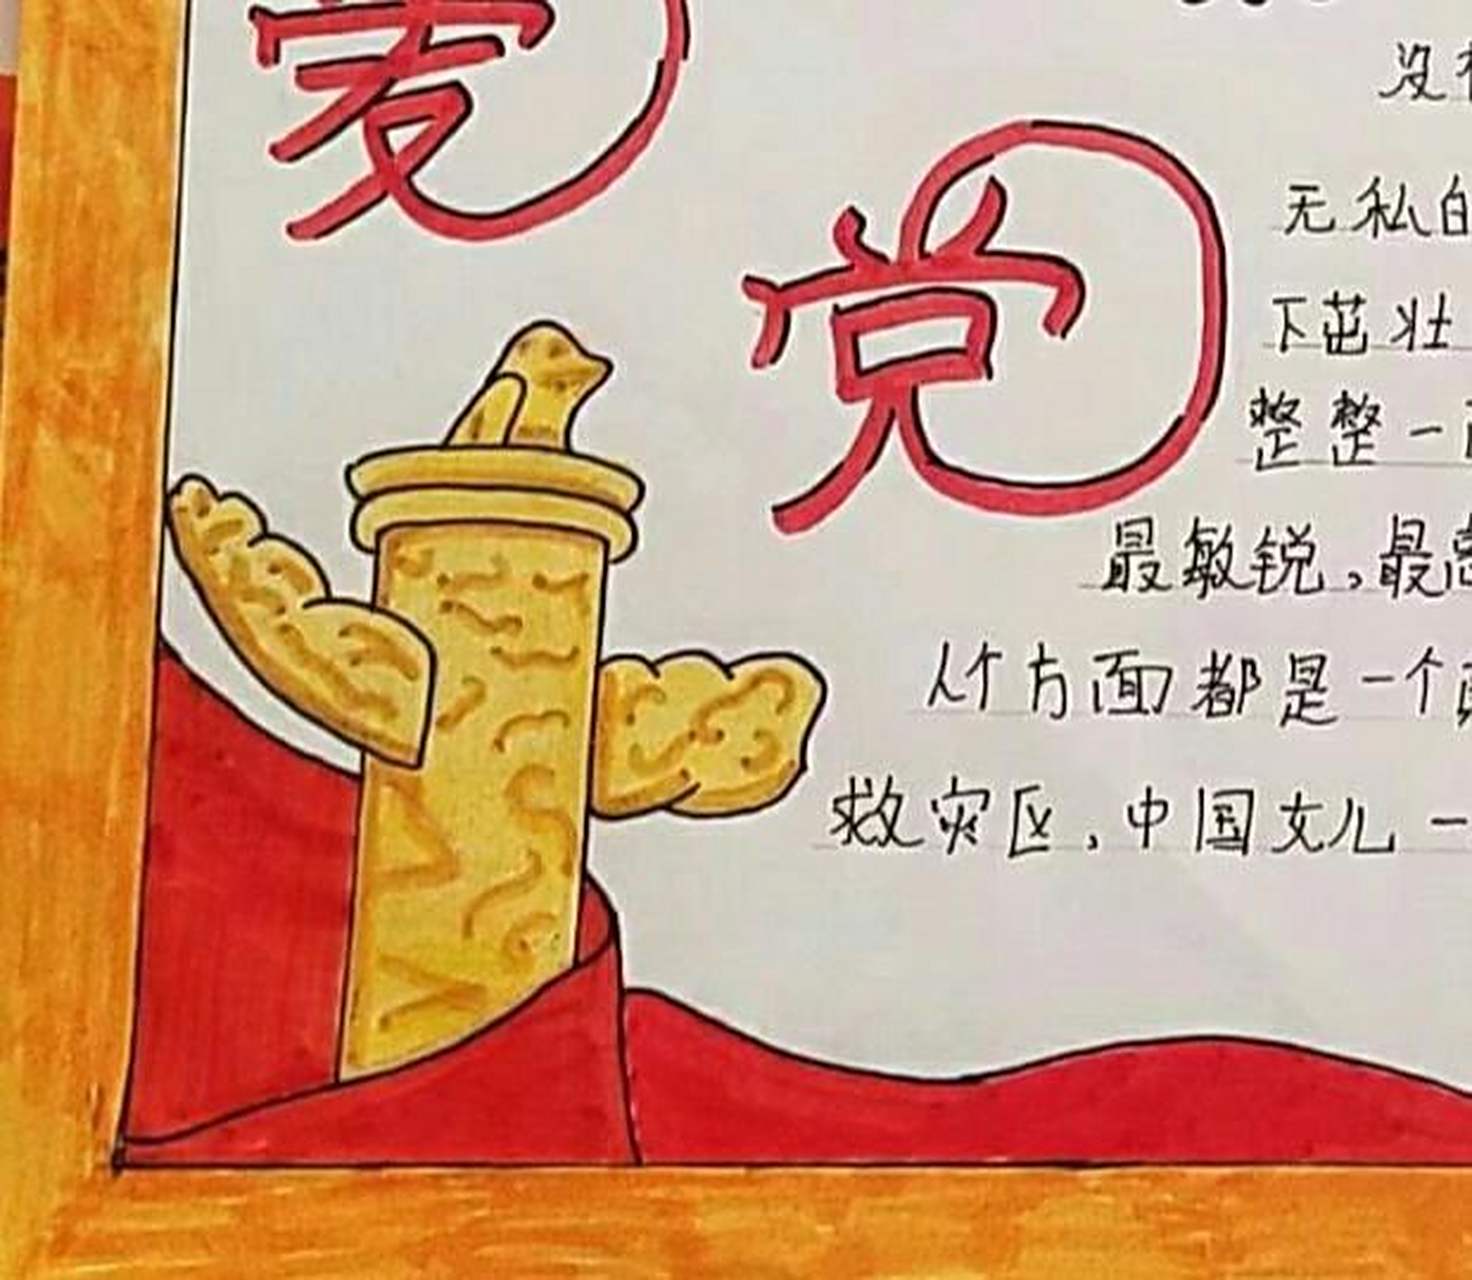 爱
党
没有
无私的
下茁壮
整整一
最敏锐,最
个方面都是一个
救灾区,中国女儿一